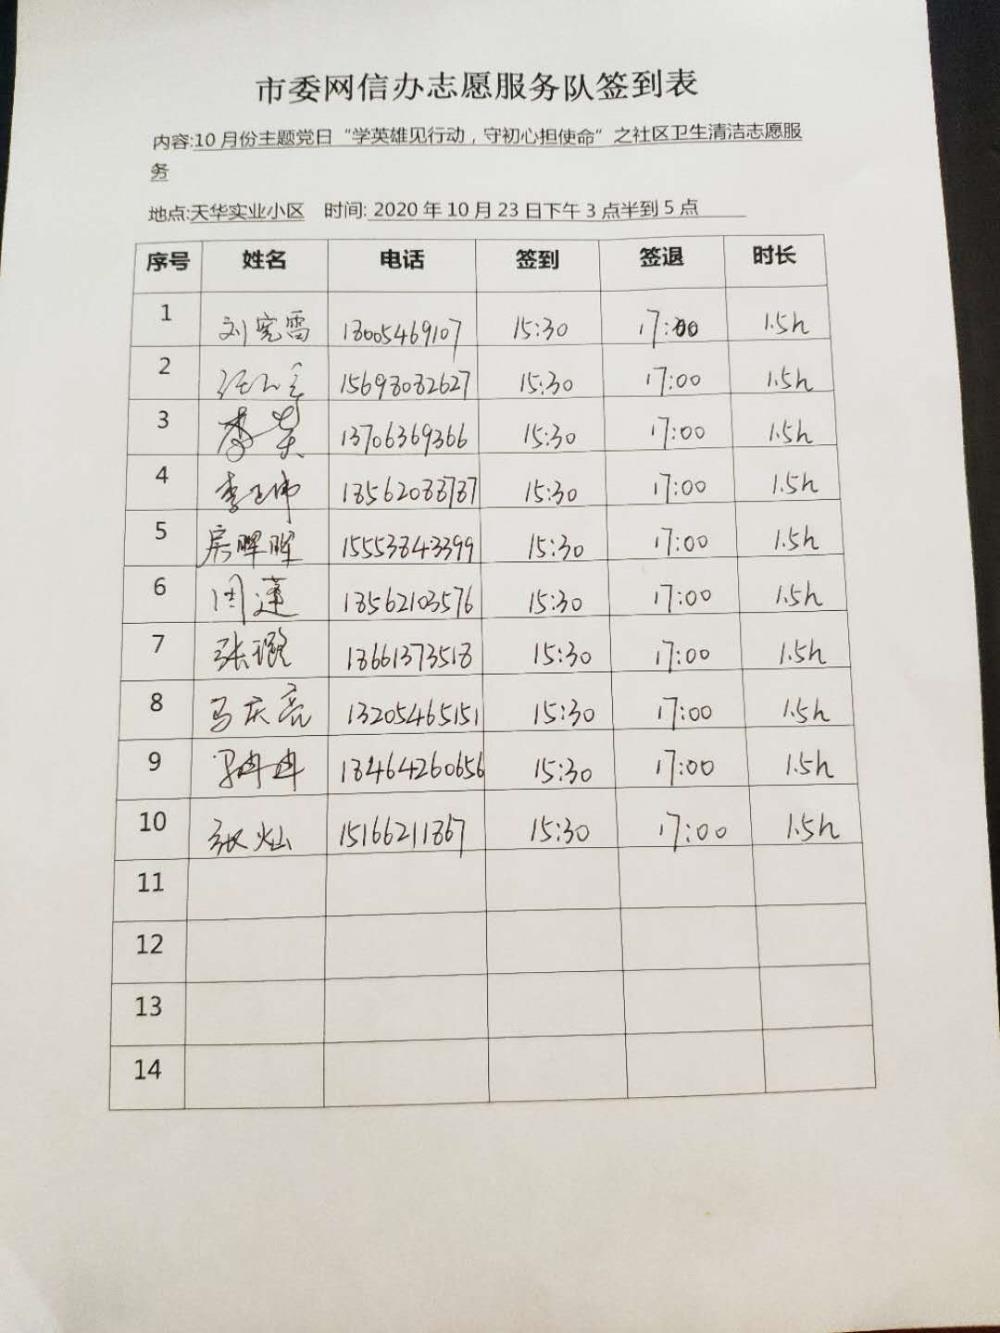 市委网信办志愿服务队签到表
内容:10月份主题党日“学英雄见行动，守初心担使命”之社区卫生清洁志愿服
务
地点:天华实业小区 时间: 2020年10月23日下午3点半到5点
序号 姓名 电话 签到 签退 时长
1 刘宪雷 18005469107 15:30 17:00 1.5h
2 15698082627 15:30 17:00 1.5h
3 李荣 13706369366 15:30 17:00 1.5h
4 李卫伟 18562088787 15:30 17:00 1.5h
5 房晖晖 15553843399 15:30 17:00 1.5h
6 周莲 18562103576 15:30 17:00 1.5h
7 张璐 18661373518 15:30 17:00 1.5h
8 马庆亮 13205465151 15:30 17:00 1.5h
9 冉冉 18464260656 15:30 17:00 1.5h
10 张灿 15166211867 15:30 17:00 1.5h
11
12
13
14